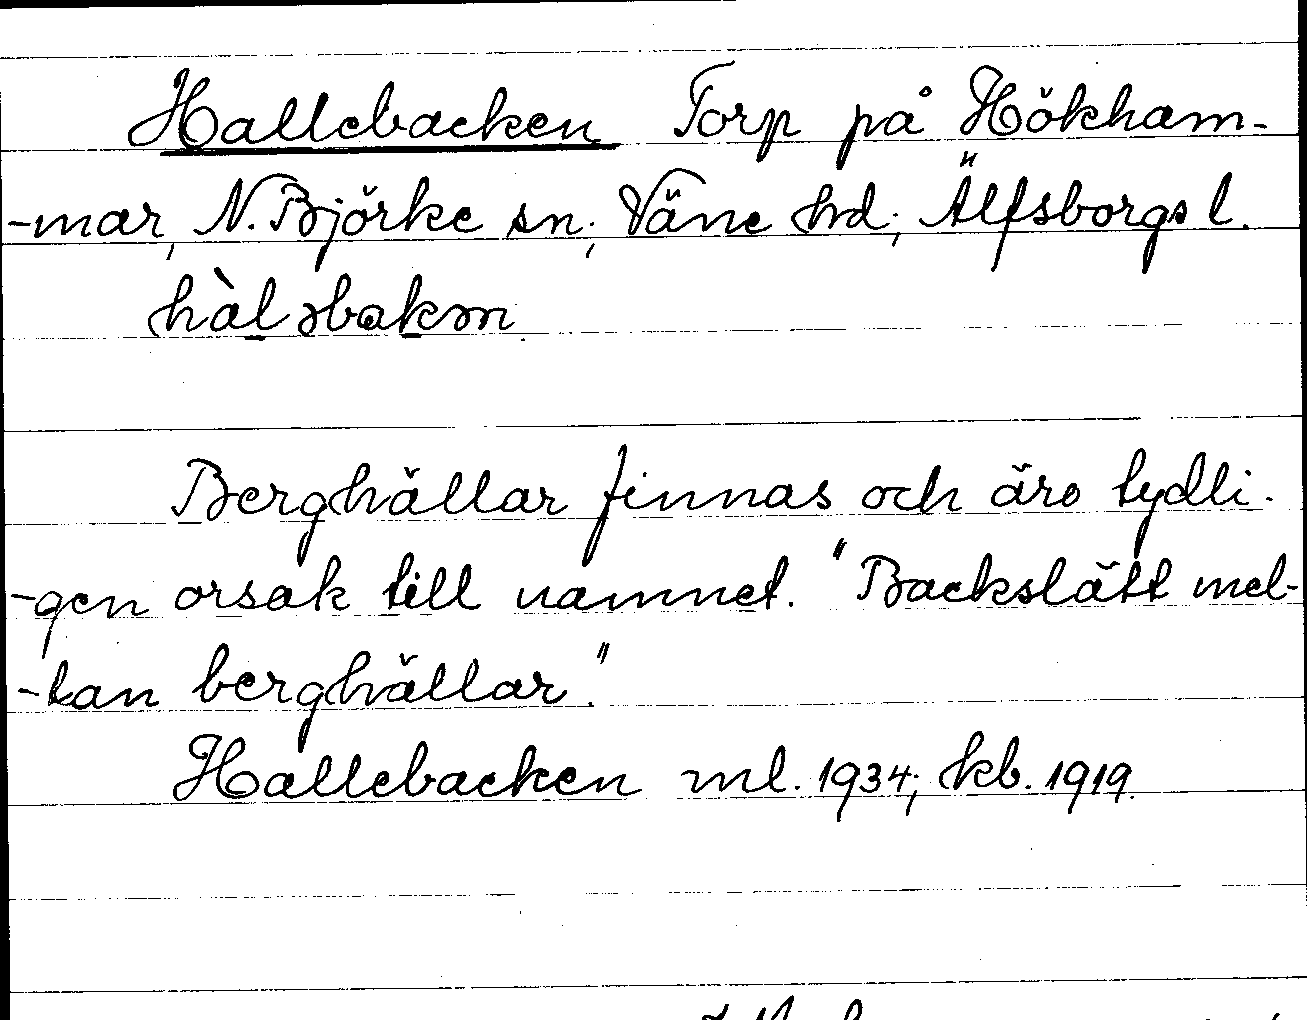 Hallebacken Torp på Hökham-
-mar, N. Björke sn; Väne hd; Älfsborgs l.
hàləbakən
Berghällar finnas och äro tydli-
-gen orsak till namnet. "Backslätt mel-
-lan berghällar."
Hallebacken ml. 1934; kb. 1919.